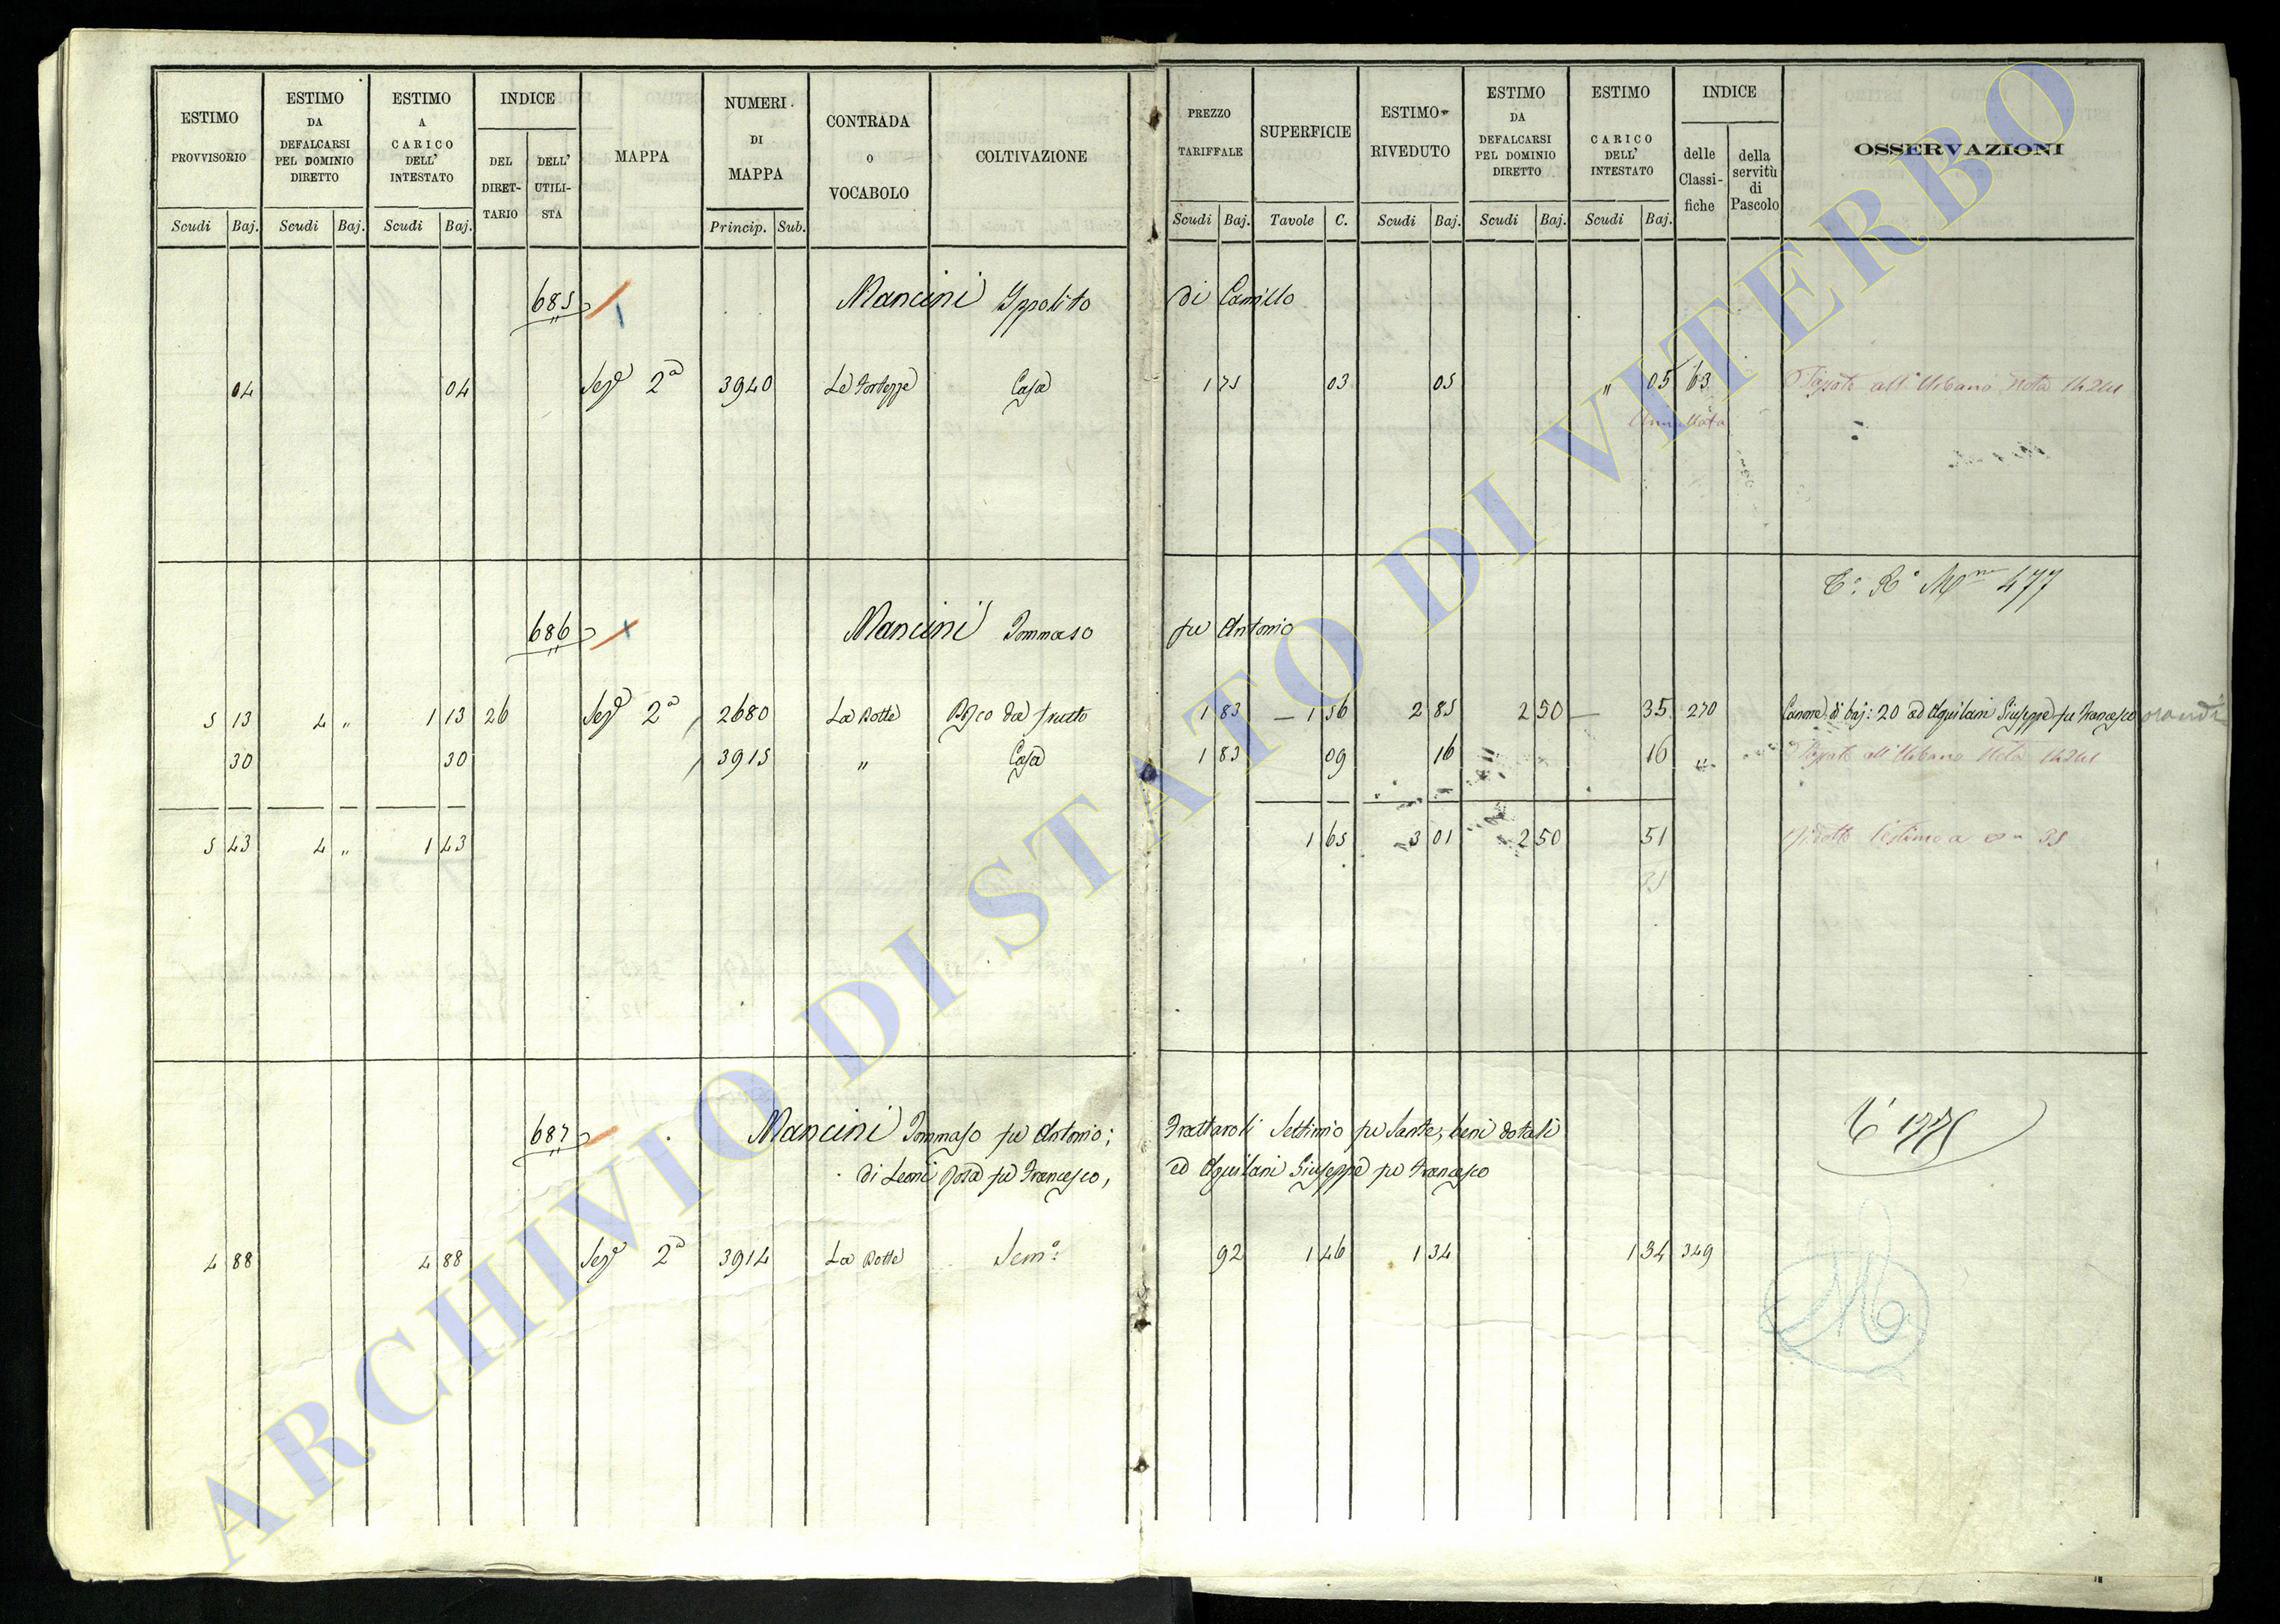 ESTIMO PROVVISORIO
ESTIMO DA DEFALCARSI PEL DOMINIO DIRETTO
ESTIMO A CARICO DELL' INTESTATO
INDICE
DEL DIRETTARIO
DELL' UTILISTA
MAPPA
NUMERI DI MAPPA
CONTRADA O VOCABOLO
COLTIVAZIONE
PREZZO TARIFFALE
SUPERFICIE
ESTIMO RIVEDUTO
ESTIMO DA DEFALCARSI PEL DOMINIO DIRETTO
ESTIMO CARICO DELL' INTESTATO
INDICE
delle Classifiche
della servitù di Pascolo
OSSERVAZIONI
Scudi Baj. Scudi Baj. Scudi Baj. Princip. Sub. Scudi Baj. Tavole C. Scudi Baj. Scudi Baj. Scudi Baj.
685 Mancini Ippolito di Camillo
04 04 Sezе 2a 3940 Le Fortezze Casa 1 75 03 05 " 05 63 all'Urbano Nota
Annullata
477
686 Mancini Tommaso fu Antonio
5 13 4 " 1 13 26 Seze 2a 2680 La Botte Bosco da frutto 1 83 1 56 2 85 2 50 35 270 Canone di baj: 20 ad Aquilani Giuseppe fu Francesco
30 30 3915 " Casa 1 83 09 16 " 16 " all'Urbano Nota
5 43 4 " 1 43 1 65 3 01 2 50 51 l'estimo a 35
35
687 Mancini Tommaso fu Antonio; Frattaroli Settimio fu Sante, beni dotali
di Leoni Rosa fu Francesco, ed Aquilani Giuseppe fu Francesco
4 88 4 88 Seze 2a 3914 La Botte Semo: 92 1 46 1 34 1 34 349
ARCHIVIO DI STATO DI VITERBO